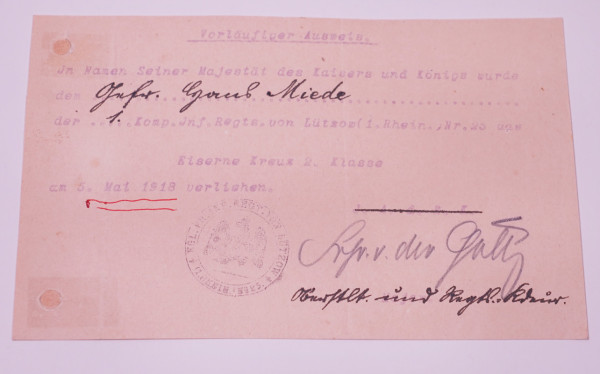 Vorläufiger Ausweis.
Im Namen Seiner Majestät des Kaisers und Königs wurde
dem Gefr. Hans Miede
der 1. Komp.Inf.Regts.von Lützow(1.Rhein.)Nr.25 das
Eiserne Kreuz 2. Klasse
am 5. Mai 1918 verliehen.
Frhr. v. der Goltz
Oberstlt. und Regts. Kdeur.